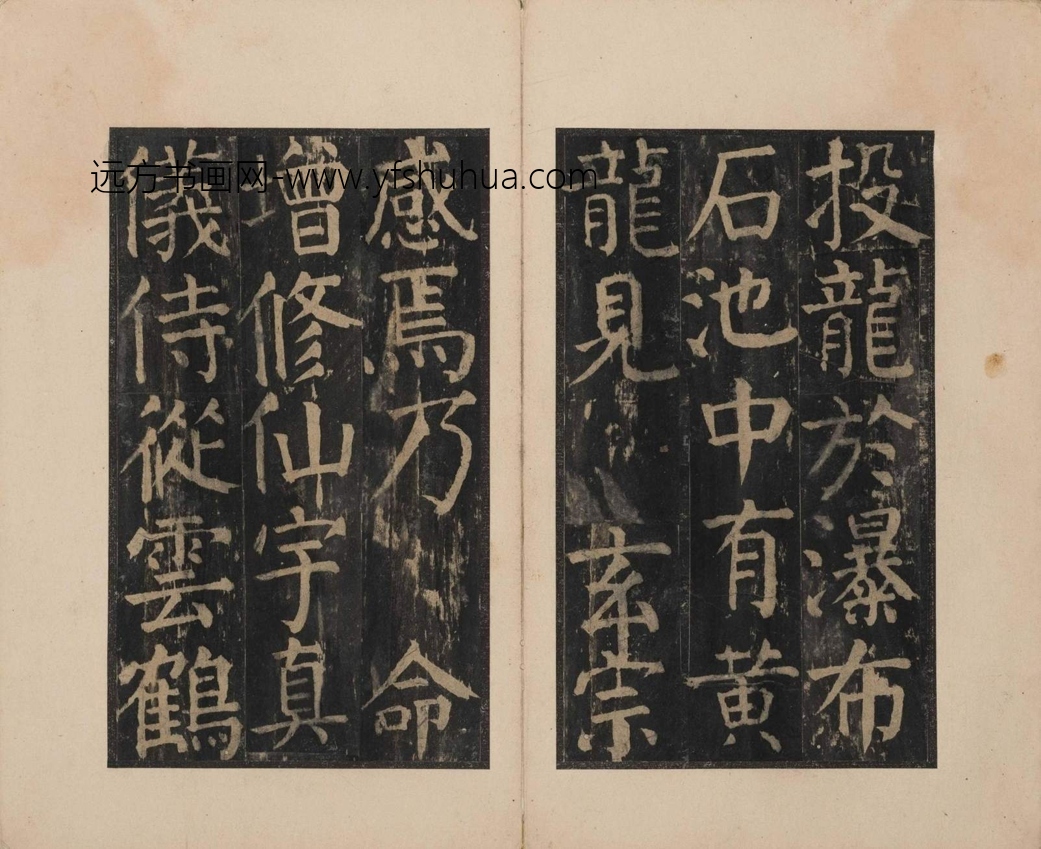 投龍於瀑布
石池中有黃
龍見玄宗
感焉乃命
增修仙宇真
儀侍從雲鶴
远方书画网-www.yfshuhua.com